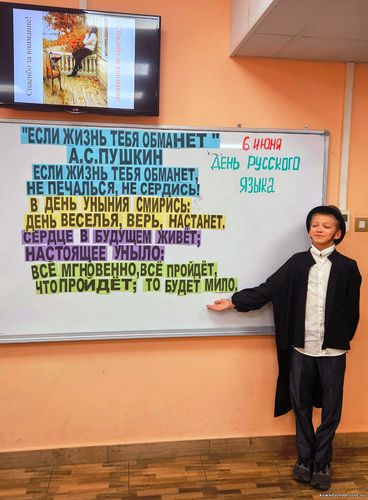 Спасибо за внимание!
"ЕСЛИ ЖИЗНЬ ТЕБЯ ОБМАНЕТ "
А.С.ПУШКИН
ЕСЛИ ЖИЗНЬ ТЕБЯ ОБМАНЕТ,
НЕ ПЕЧАЛЬСЯ, НЕ СЕРДИСЬ!
В ДЕНЬ УНЫНИЯ СМИРИСЬ:
ДЕНЬ ВЕСЕЛЬЯ, ВЕРЬ, НАСТАНЕТ.
СЕРДЦЕ В БУДУЩЕМ ЖИВЁТ;
НАСТОЯЩЕЕ УНЫЛО:
ВСЁ МГНОВЕННО,ВСЁ ПРОЙДЁТ,
ЧТО ПРОЙДЁТ; ТО БУДЕТ МИЛО.
6 ИЮНЯ
ДЕНЬ РУССКОГО
ЯЗЫКА